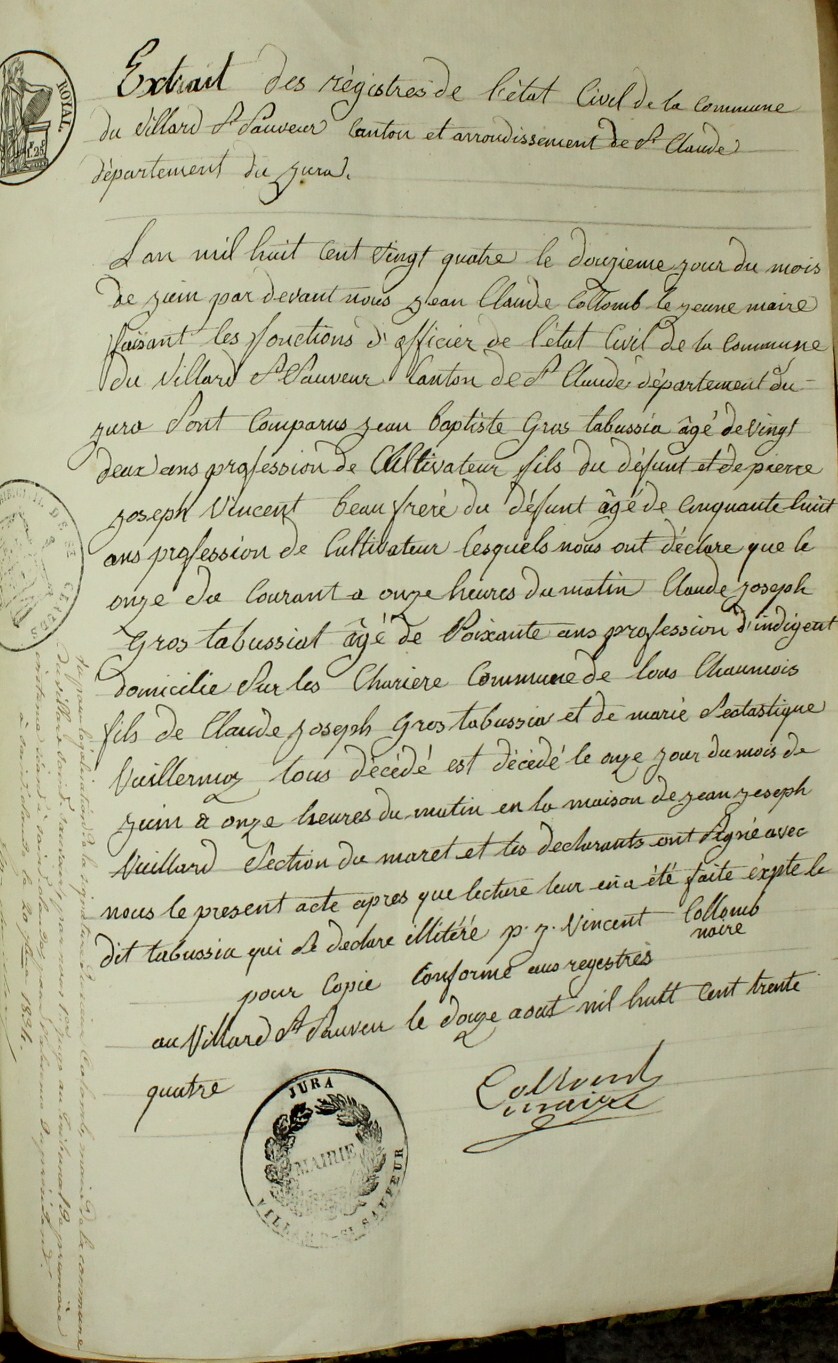 Extrait des régistres de l'état Civil de la Commune
du Villard St Sauveur Canton et arrondissement de St Claude
département du jura.
L'an mil huit Cent vingt quatre le douzieme jour du mois
de juin par devant nous jean Claude Collomb le jeune maire
faisant les fonctions d'officier de l'état Civil de la Commune
du Villard St Sauveur Canton de St Claude, département du
jura Sont Comparus jean baptiste Gros tabussia âgé de vingt
deux ans profession de Cultivateur fils du défunt et de pierre
joseph Vincent beau freré du défunt âgé de Cinquante huit
ans profession de Cultivateur lesquels nous ont déclare que le
onze du Courant a onze heures du matin Claude joseph
Gros tabussiat âgé de Soixante ans profession d'indigent
domicilie Sur les Chariere Commune de lons Chaumois
fils de Claude joseph Gros tabussia et de marie Scolastique
Vuillermoz tous décédé est décédé le onze jour du mois de
juin a onze heures du matin en la maison de jean joseph
Vuillard Section du maret et les declarants ont Signé avec
nous le present acte apres que lecture leur en a été faite éxpte le
dit tabussia qui Se declare illitéré p. j. Vincent Collomb
maire
pour Copie Conforme aux regestres
au Villard St Sauveur le douze aout mil huit Cent trente
quatre
Collomb
maire
JURA
MAIRIE
VILLARD-St SAUVEUR
ROYAL